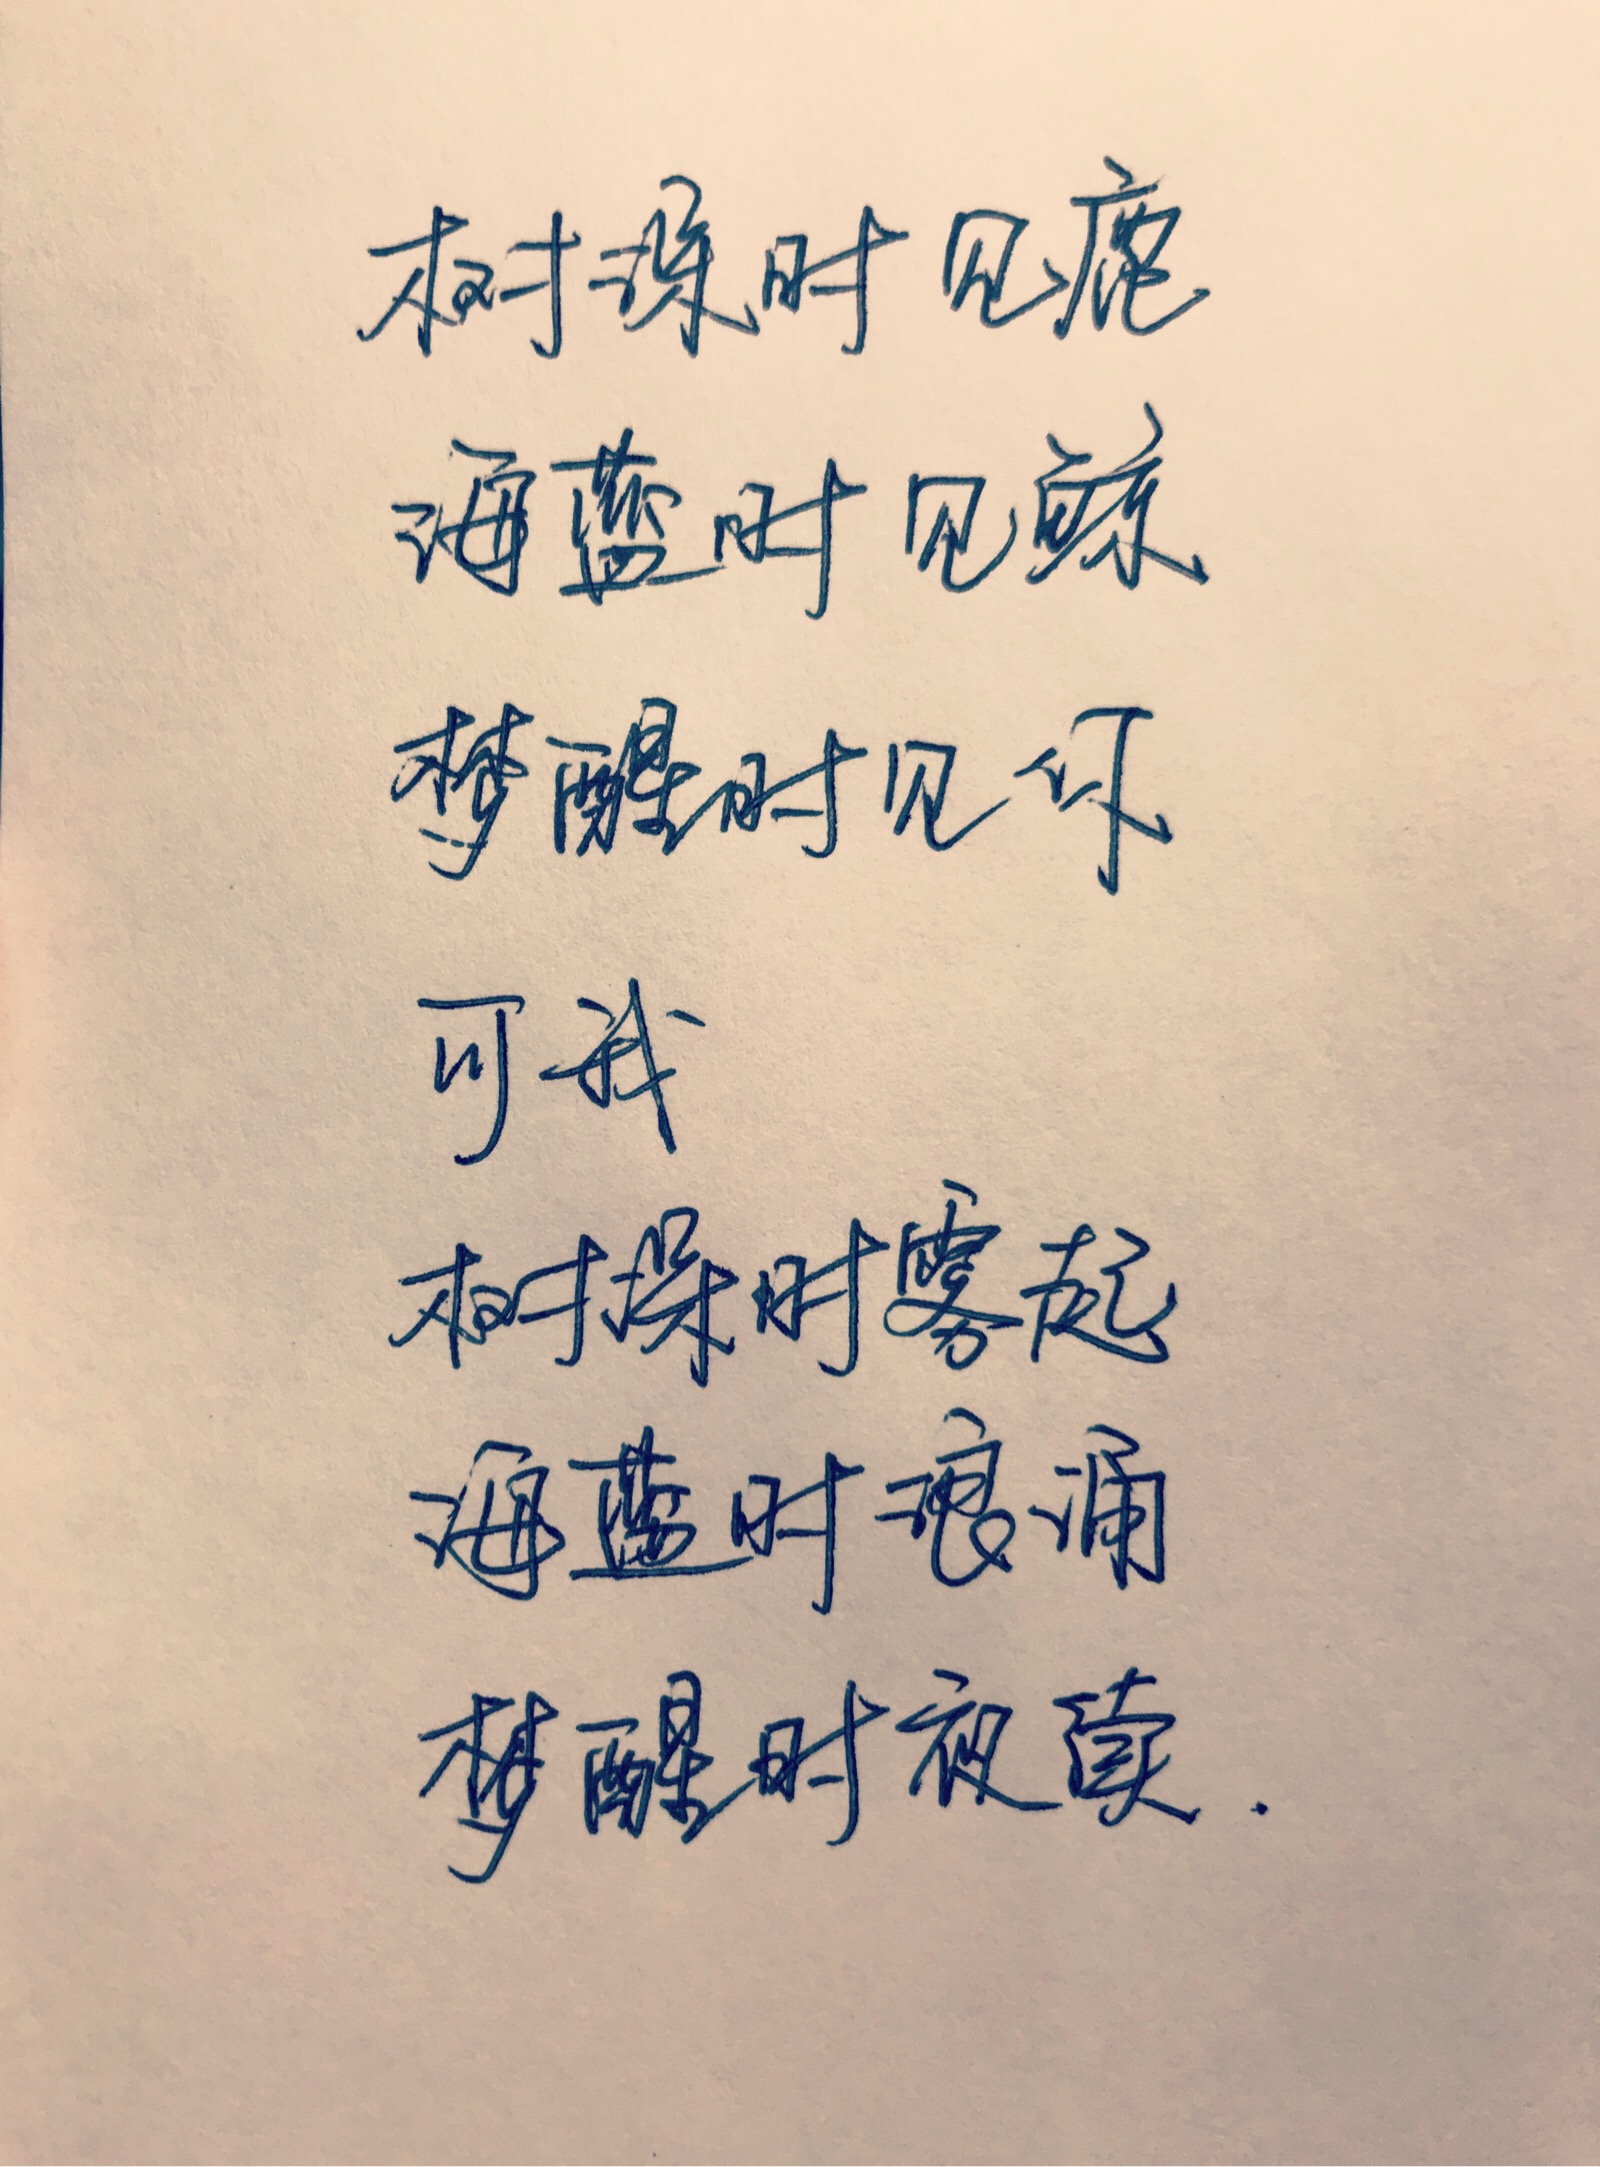 树深时见鹿
海蓝时见鲸
梦醒时见你
可我
树深时雾起
海蓝时浪涌
梦醒时夜续.